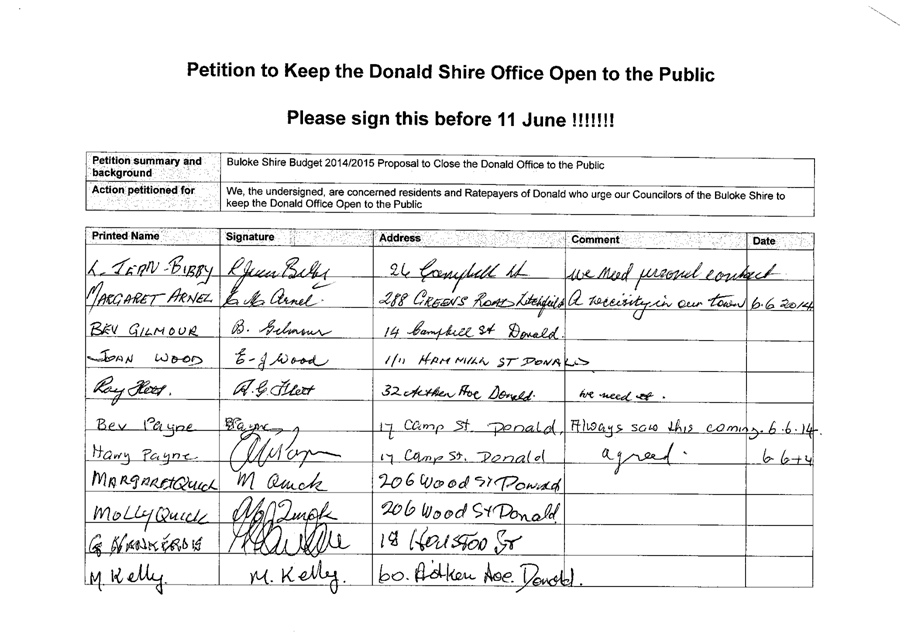 Petition to Keep the Donald Shire Office Open to the Public
Please sign this before 11 June !!!!!!!
Petition summary and background Buloke Shire Budget 2014/2015 Proposal to Close the Donald Office to the Public
Action petitioned for We, the undersigned, are concerned residents and Ratepayers of Donald who urge our Councilors of the Buloke Shire to
keep the Donald Office Open to the Public
Printed Name Signature Address Comment Date
L. JERN-BIBBY 26 Campbell St we need personal contact
MARGARET ARNEL M Arnel. 288 GREENS ROAD Litchfield A neccisity in our town 6.6 2014
BEV GILMOUR B. Gilmour 14 Campbell St Donald.
JOAN WOOD E-J Wood 1/11 HAMMILL ST DONALD
Ray Flett. R.G. Flett 32 Aitken Ave Donald. we need it.
Bev Payne BPayne 17 Camp St. Donald. Always saw this coming. 6.6.14.
Harry Payne 17 Camp St. Donald agreed. 6 6 14
MARGARET QUICK M Quick 206 Wood ST Donald
MOLLY QUICK Quick 206 Wood St Donald
G 18 HOUSTON St
M. Kelly. M. Kelly. 60. Aitken Ave. Donald.